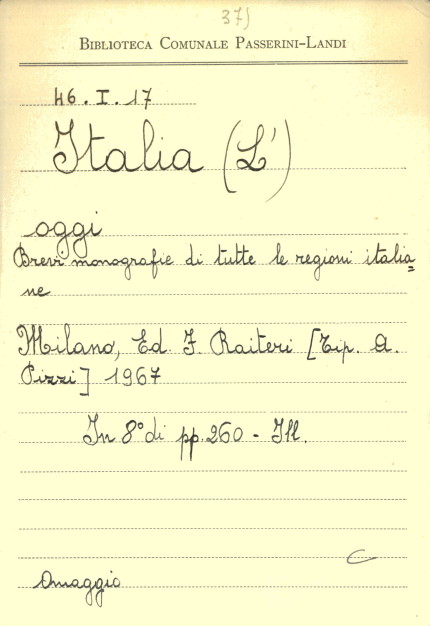 375
BIBLIOTECA COMUNALE PASSERINI-LANDI
46.I.17
Italia (L')
oggi
Brevi monografie di tutte le regioni italia=
ne
Milano, Ed. F. Raiteri [Tip. A.
Pizzi] 1967
In 8° di pp. 260 - Ill.
C
Omaggio